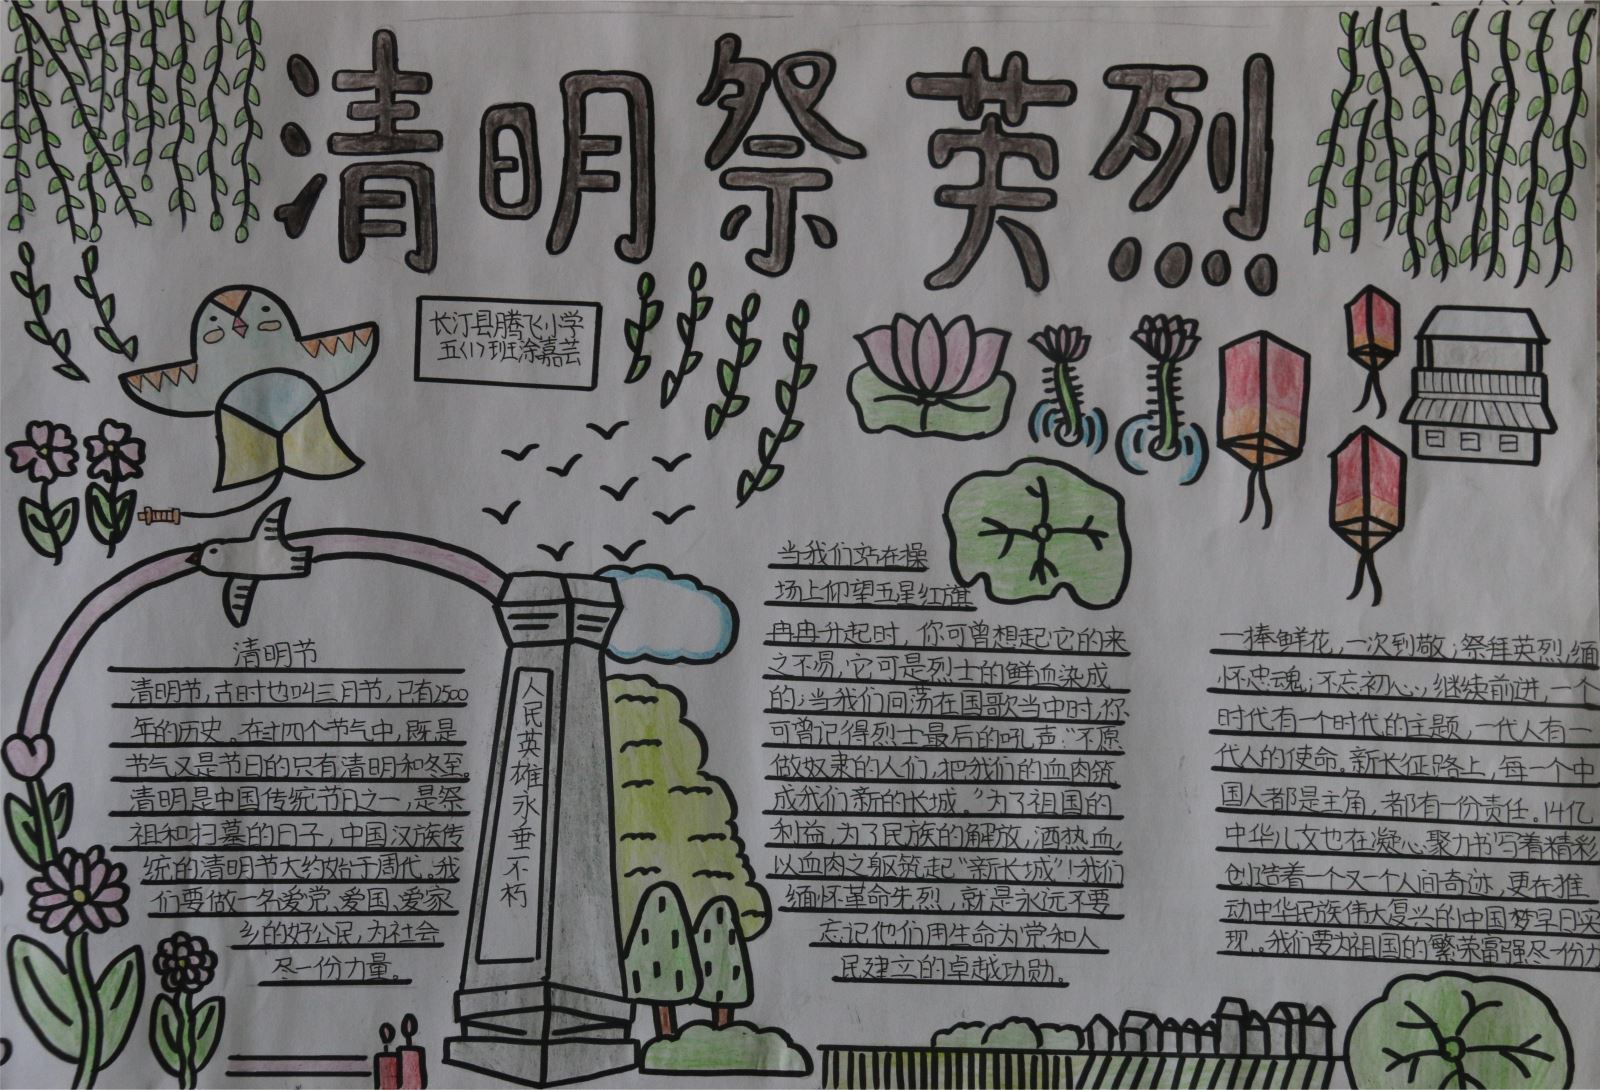 清明祭英烈
长汀县腾飞小学
五(1)班涂嘉芸
清明节
清明节,古时也叫三月节,已有2500
年的历史。在廿四个节气中,既是
节气又是节日的只有清明和冬至。
清明是中国传统节日之一,是祭
祖和扫墓的日子,中国汉族传
统的清明节大约始于周代。我
们要做一名爱党、爱国、爱家
乡的好公民,为社会
尽一份力量。
人民英雄永垂不朽
当我们站在操
场上仰望五星红旗
冉冉升起时,你可曾想起它的来
之不易,它可是烈士的鲜血染成
的;当我们回荡在国歌当中时,你
可曾记得烈士最后的吼声:“不愿
做奴隶的人们,把我们的血肉筑
成我们新的长城。”为了祖国的
利益,为了民族的解放,洒热血,
以血肉之躯筑起“新长城”!我们
缅怀革命先烈,就是永远不要
忘记他们用生命为党和人
民建立的卓越功勋。
一捧鲜花,一次到敬;祭拜英烈,缅
怀忠魂;不忘初心,继续前进,一个
时代有一个时代的主题,一代人有一
代人的使命。新长征路上,每一个中
国人都是主角,都有一份责任。14亿
中华儿女也在凝心聚力书写着精彩
创造着一个又一个人间奇迹,更在推
动中华民族伟大复兴的中国梦早日实
现。我们要为祖国的繁荣富强尽一份力